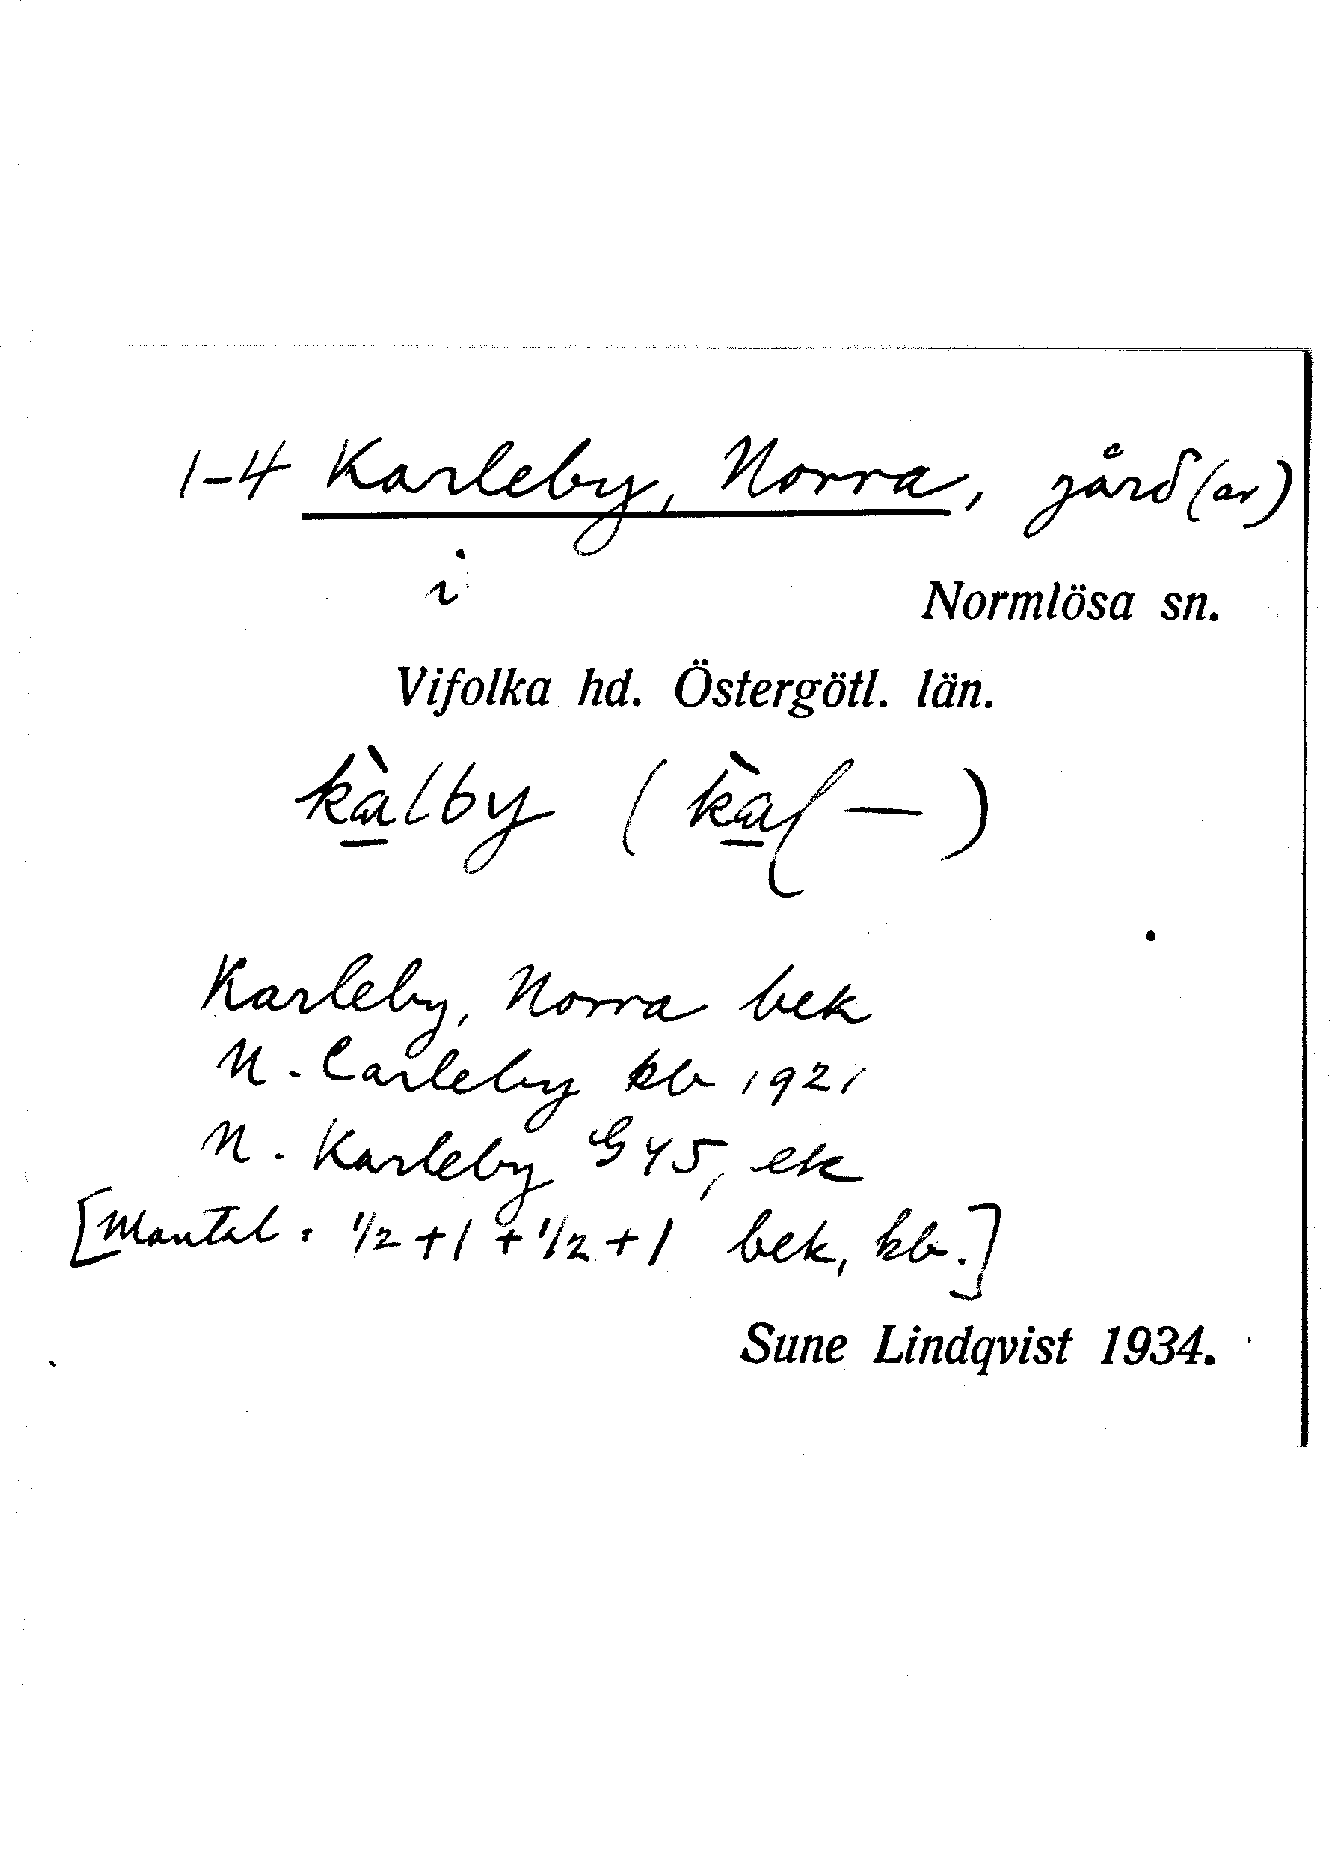 1-4 Karleby, Norra, gård(ar)
i
Normlösa sn.
Vifolka hd. Östergötl. län.
kàlby (kàl–)
Karleby, Norra bek
N. Carleby kb 1921
N. Karleby G45, ek
[Mantal: 1/2+1+1/2+1 bek, kb.]
Sune Lindqvist 1934.